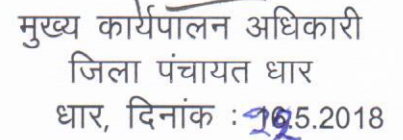 मुख्य कार्यपालन अधिकारी
जिला पंचायत धार
धार, दिनांक : .5.2018